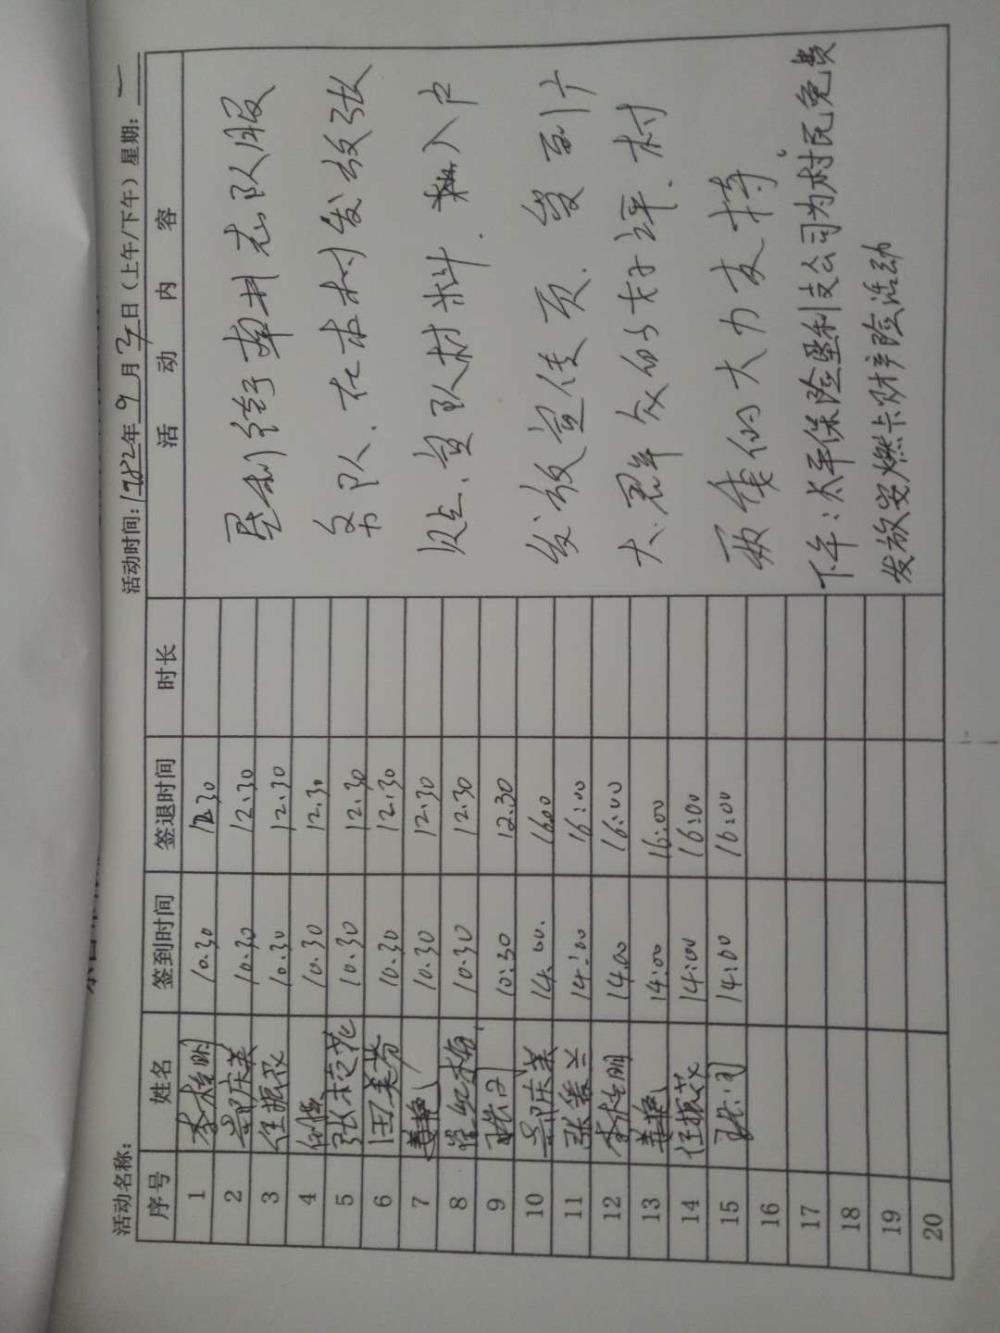 活动名称:
活动时间: 年 9 月 日(上午/下午)星期: 一
序号 姓名 签到时间 签退时间 时长 活动内容
1 李桂明 10.30 12.30
2 郭庆美 10.30 12.30
3 任振花 10.30 12.30
4 10.30 12.30
5 张桂花 10.30 12.30
6 田美芳 10.30 12.30
7 姜艳 10.30 12.30
8 10.30 12.30
9 10:30 12.30
10 郭庆美 14.00. 16.00
11 张爱兰 14:00 16:00
12 李桂明 14.00 16:00
13 姜艳 14:00 16:00
14 任振花 14:00 16:00
15 14:00 16:00
16
17
18
19
20
垦利街 志队服
务队、在 村发放张
贴 宣队材料. 入户
发放宣传页. 受到广
大群众的好评、村
两委的大力支持。
下午:太平保险垦利支公司为村民免费
发放安燃卡财产险活动